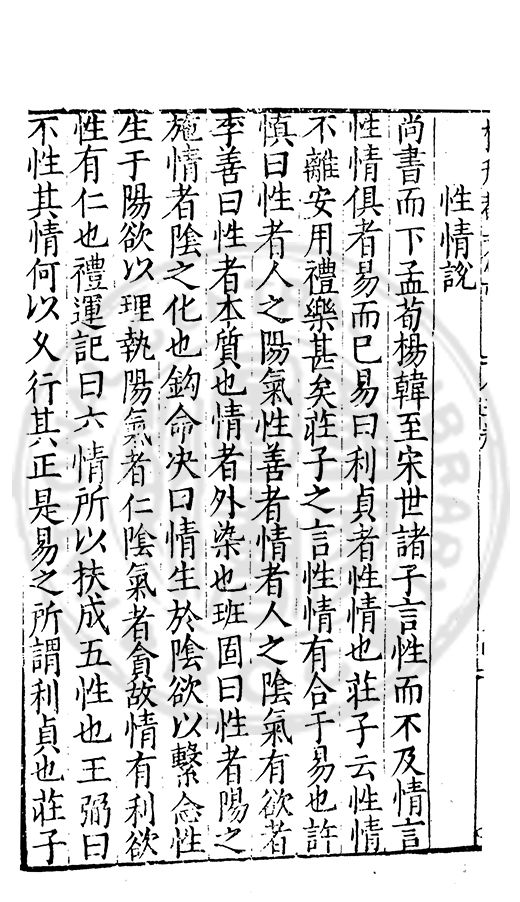 性情說
尚書而下孟荀楊韓至宋世諸子言性而不及情言
性情俱者易而已易曰利貞者性情也莊子云性情
不離安用禮樂甚矣莊子之言性情有合于易也許
慎曰性者人之陽氣性善者情者人之陰氣有欲者
李善曰性者本質也情者外染也班固曰性者陽之
施情者陰之化也鈎命决曰情生於陰欲以繫念性
生于陽欲以理執陽氣者仁陰氣者貪故情有利欲
性有仁也禮運記曰六情所以扶成五性也王弼曰
不性其情何以久行其正是易之所謂利貞也莊子